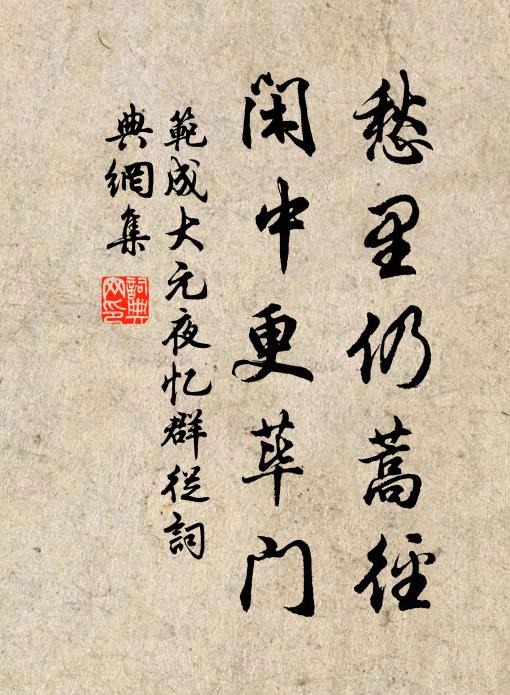 愁里仍蒿径
闲中更荜门
範成大元夜忆群従詞
典網集
詞典网印